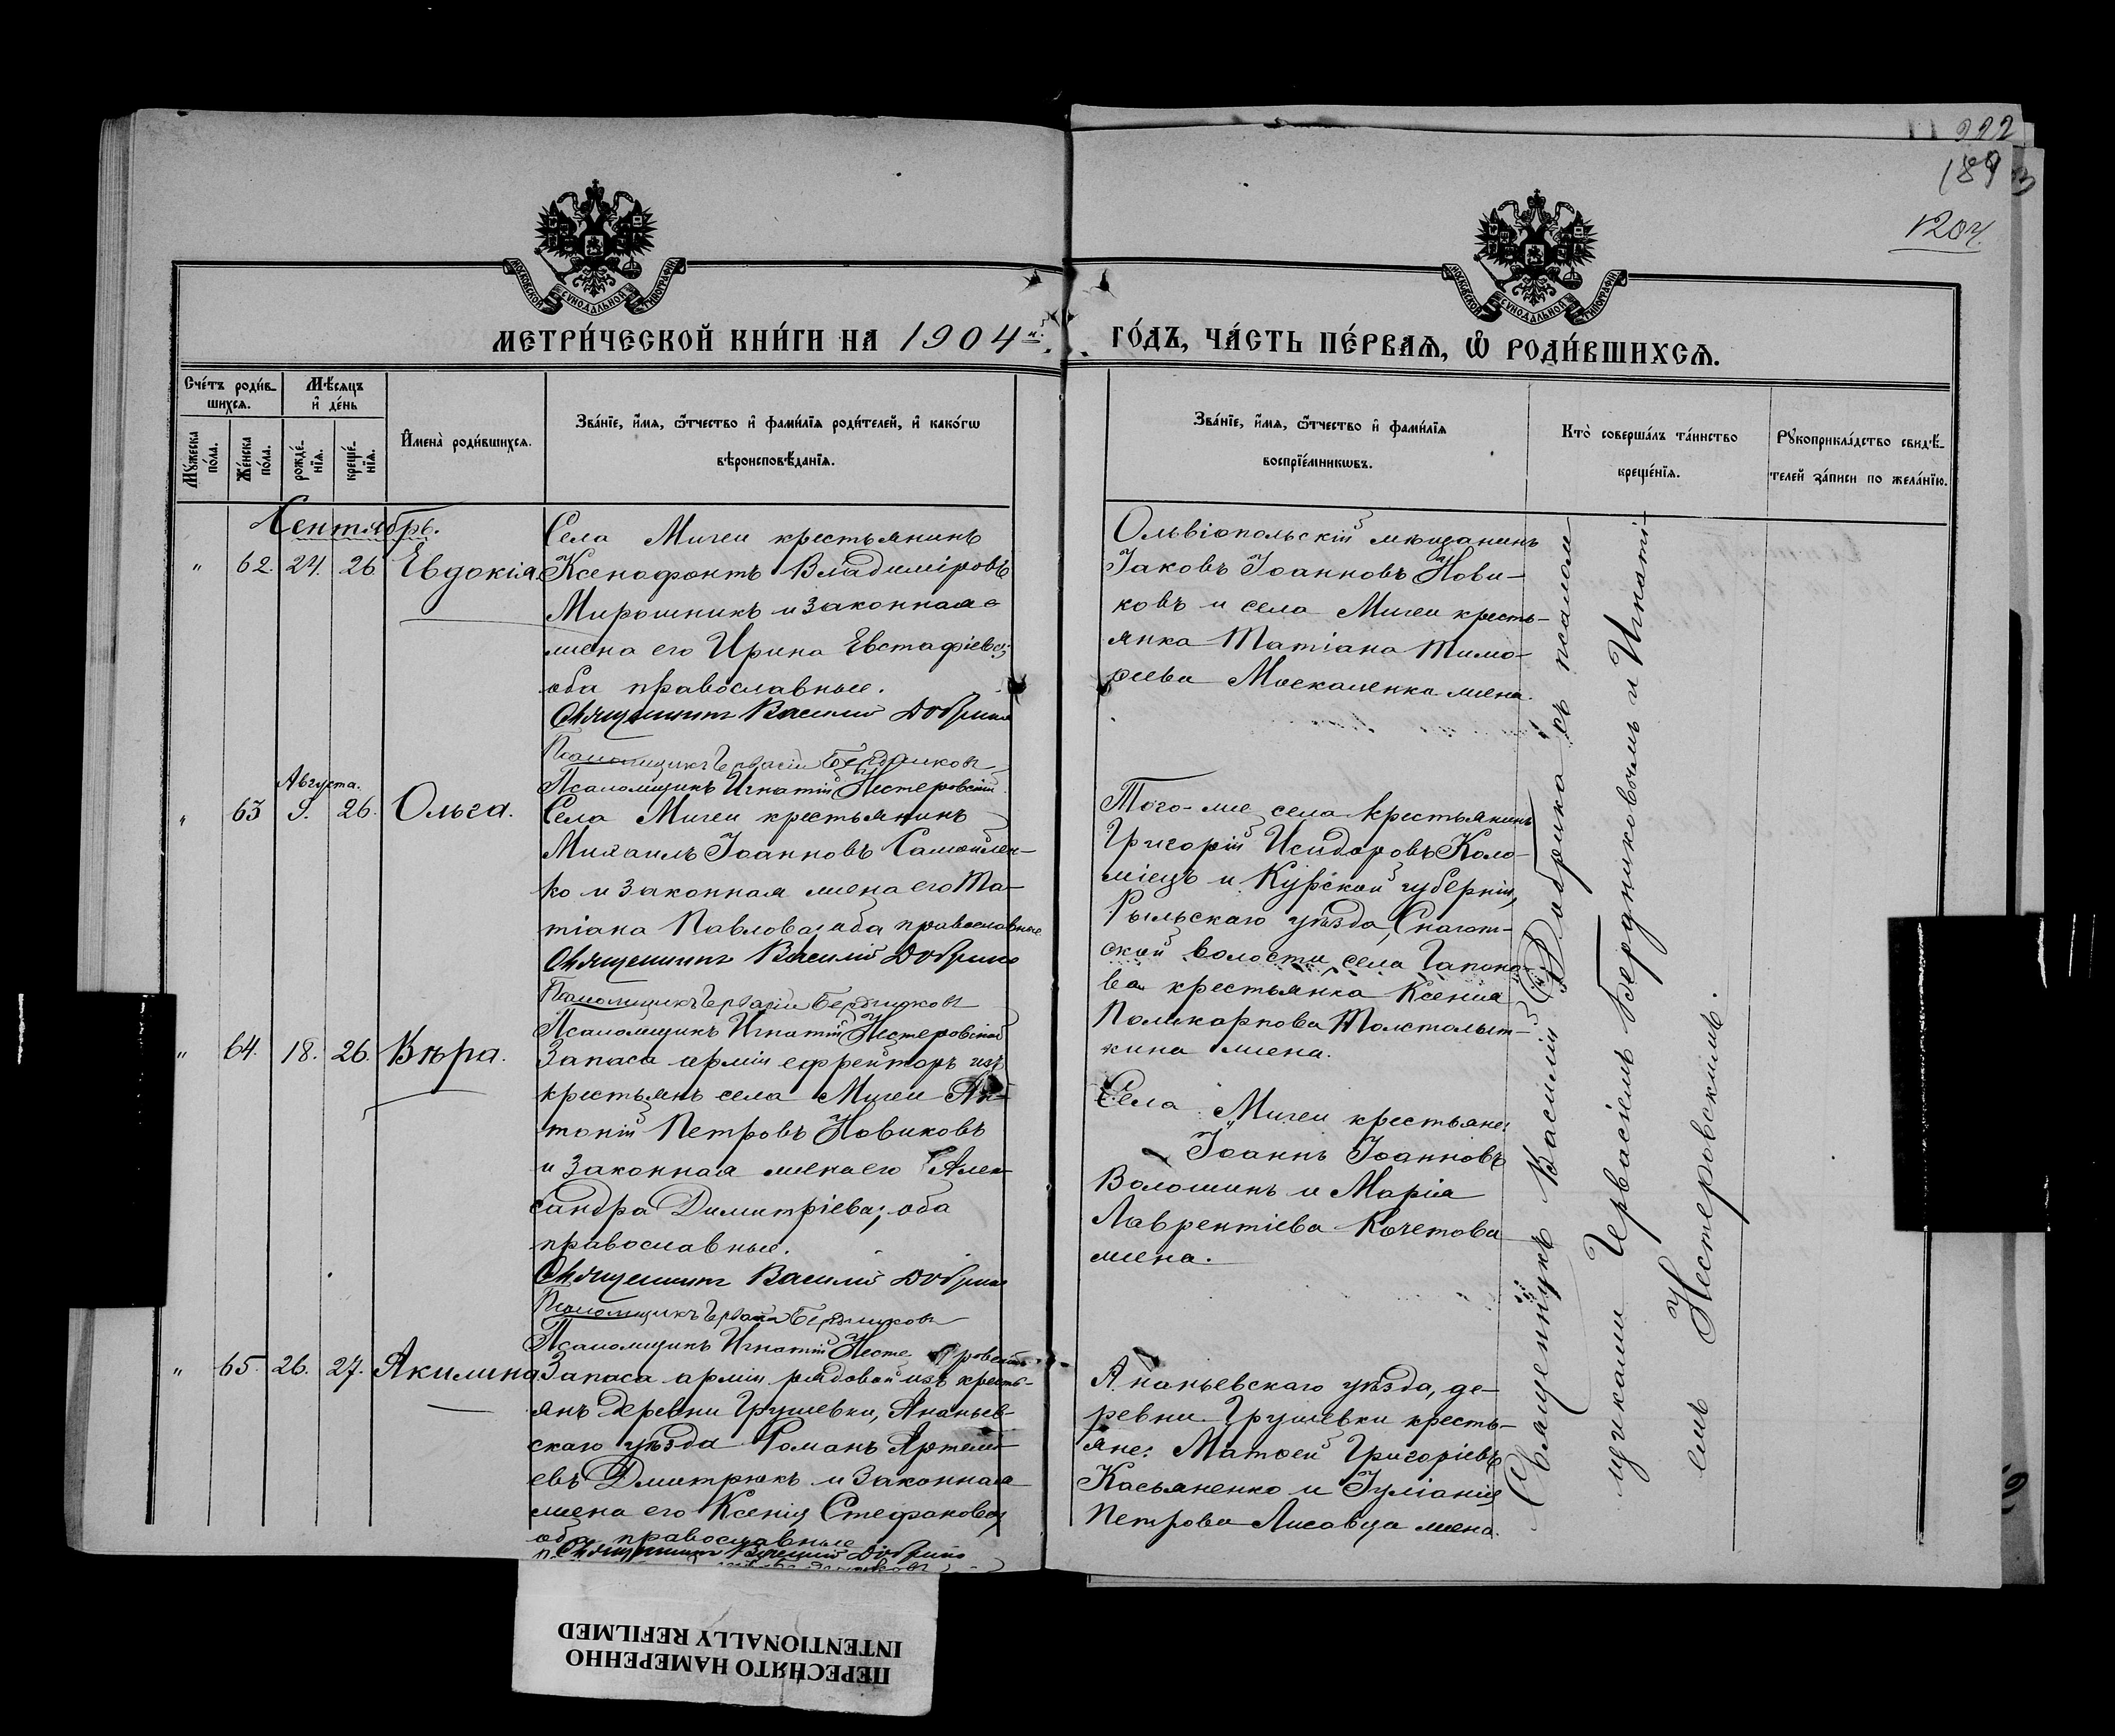 222
189
1204.
МОСКОВСКОЙ СѴНОДАЛЬНОЙ ТИПОГРАФІИ
МОСКОВСКОЙ СѴНОДАЛЬНОЙ ТИПОГРАФІИ
МЕТРИ́ЧЕСКОЙ КНИ́ГИ НА 1904 й. ГО́ДЪ, ЧА́СТЬ ПЕ́РВАѦ, Ѽ РОДИ́ВШИХСѦ.
Сче́тъ роди́в-
шихсѧ.
Мꙋ́жеска
по́ла.
Же́нска
по́ла.
Мѣ́сяцъ
и҆ де́нь
рожде́-
нїѧ.
креще́-
нїѧ.
И҆мена̀ роди́вшихсѧ.
Зва́нїе, и҆́мѧ, ѻ҆́тчество и҆ фами́лїѧ роди́телей, и҆ како́гѡ
вѣроисповѣ́данїѧ.
Зва́нїе, и҆́мѧ, ѻ҆́тчество и҆ фами́лїѧ
воспрїе́мникѡвъ.
Кто̀ соверша́лъ та́инство
креще́нїѧ.
Рꙋкоприкла́дство свидѣ́-
телей за́писи по жела́нїю.
Сентябрь.
" 62. 24. 26 Евдокія
Села Мигеи крестьянинъ
Ксенофонтъ Владиміровъ
Мирошникъ и законная
жена его Ирина Евстафіева;
оба православные.
Священникъ Василій Добрика
Псаломщикъ Гервасій Бердниковъ
Псаломщикъ Игнатій Нестеровскій
Ольвіопольскій мѣщанинъ
Іаковъ Іоанновъ Нови-
ковъ и села Мигеи кресть-
янка Татіана Тимо-
ѳеева Москаленкина жена.
Августа.
" 63 9. 26. Ольга.
Села Мигеи крестьянинъ
Михаилъ Іоанновъ Самойлен-
ко и законная жена его Та-
тіана Павлова; оба православные
Священникъ Василій Добрика
Псаломщикъ Гервасій Бердниковъ
Псаломщикъ Игнатій Нестеровскій
Того-же села крестьянинъ
Григорій Исидоровъ Коло-
міецъ и Курской губерніи,
Рыльскаго уѣзда, Снагот-
ской волости села Гапоно-
ва крестьянка Ксенія
Поликарпова Толстолыт-
кина жена.
" 64. 18. 26. Вѣра.
Запаса арміи ефрейторъ изъ
крестьянъ села Мигеи Ан-
тоній Петровъ Новиковъ
и законная жена его Алек-
сандра Димитріева; оба
православные.
Священникъ Василій Добрика
Псаломщикъ Гервасій Бердниковъ
Псаломщикъ Игнатій Нестеровскій
Села Мигеи крестьяне:
Іоаннъ Іоанновъ
Волошинъ и Марія
Лаврентіева Кочетова
жена.
" 65. 26. 27. Акилина
Запаса арміи рядовой изъ кресть-
янъ деревни Грушевки, Ананьев-
скаго уѣзда Романъ Артемі-
евъ Дмитрюкъ и законная
жена его Ксенія Стефанова;
оба православные
Священникъ Василій Добрика
Ананьевскаго уѣзда, де-
ревни Грушевки кресть-
яне: Матѳей Григоріевъ
Касьяненко и Іуліанія
Петрова Лисавца жена.
Священникъ Василій Добрика съ псалом-
щиками Гервасіемъ Бердниковымъ и Игнаті-
емъ Нестеровскимъ.
ПЕРЕСНЯТО НАМЕРЕННО
INTENTIONALLY REFILMED